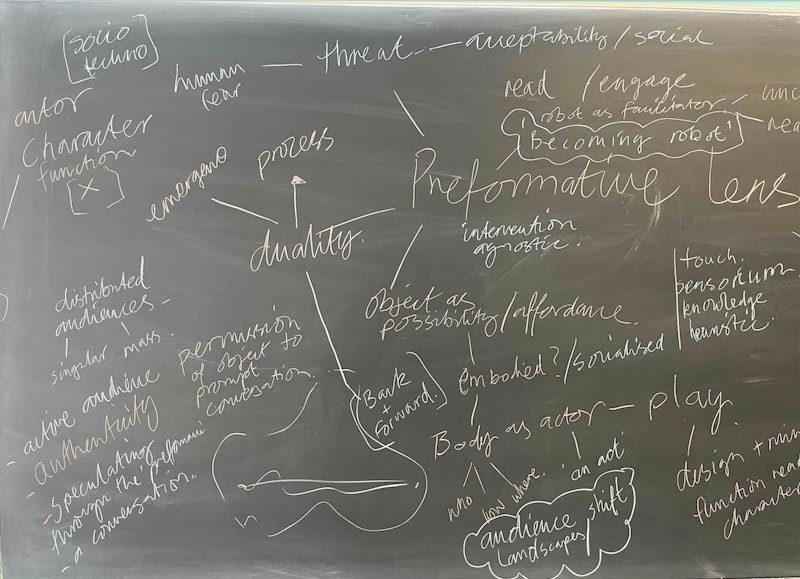 [socio
techno]
human
fear
threat — acceptability / social
actor
Character
function
[x]
read / engage
robot as facilitator
becoming robot¹
Preformative lens
process
duality.
intervention
agnostic.
touch.
sensorium
knowledge
heuristic.
distributed
audiences
singular mass.
object as
possibility / affordance.
permission
of object to
prompt
conversation
(Back
+
forward.)
embodied? / socialised
- active audience
- authenticity
- speculating
through the preformance
- a conversation.
Body as actor — play
an act
who
how where.
audience
landscapes / shift
design +
function
character